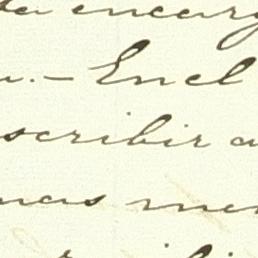 encarg
.– Enel
scribir a
mas me